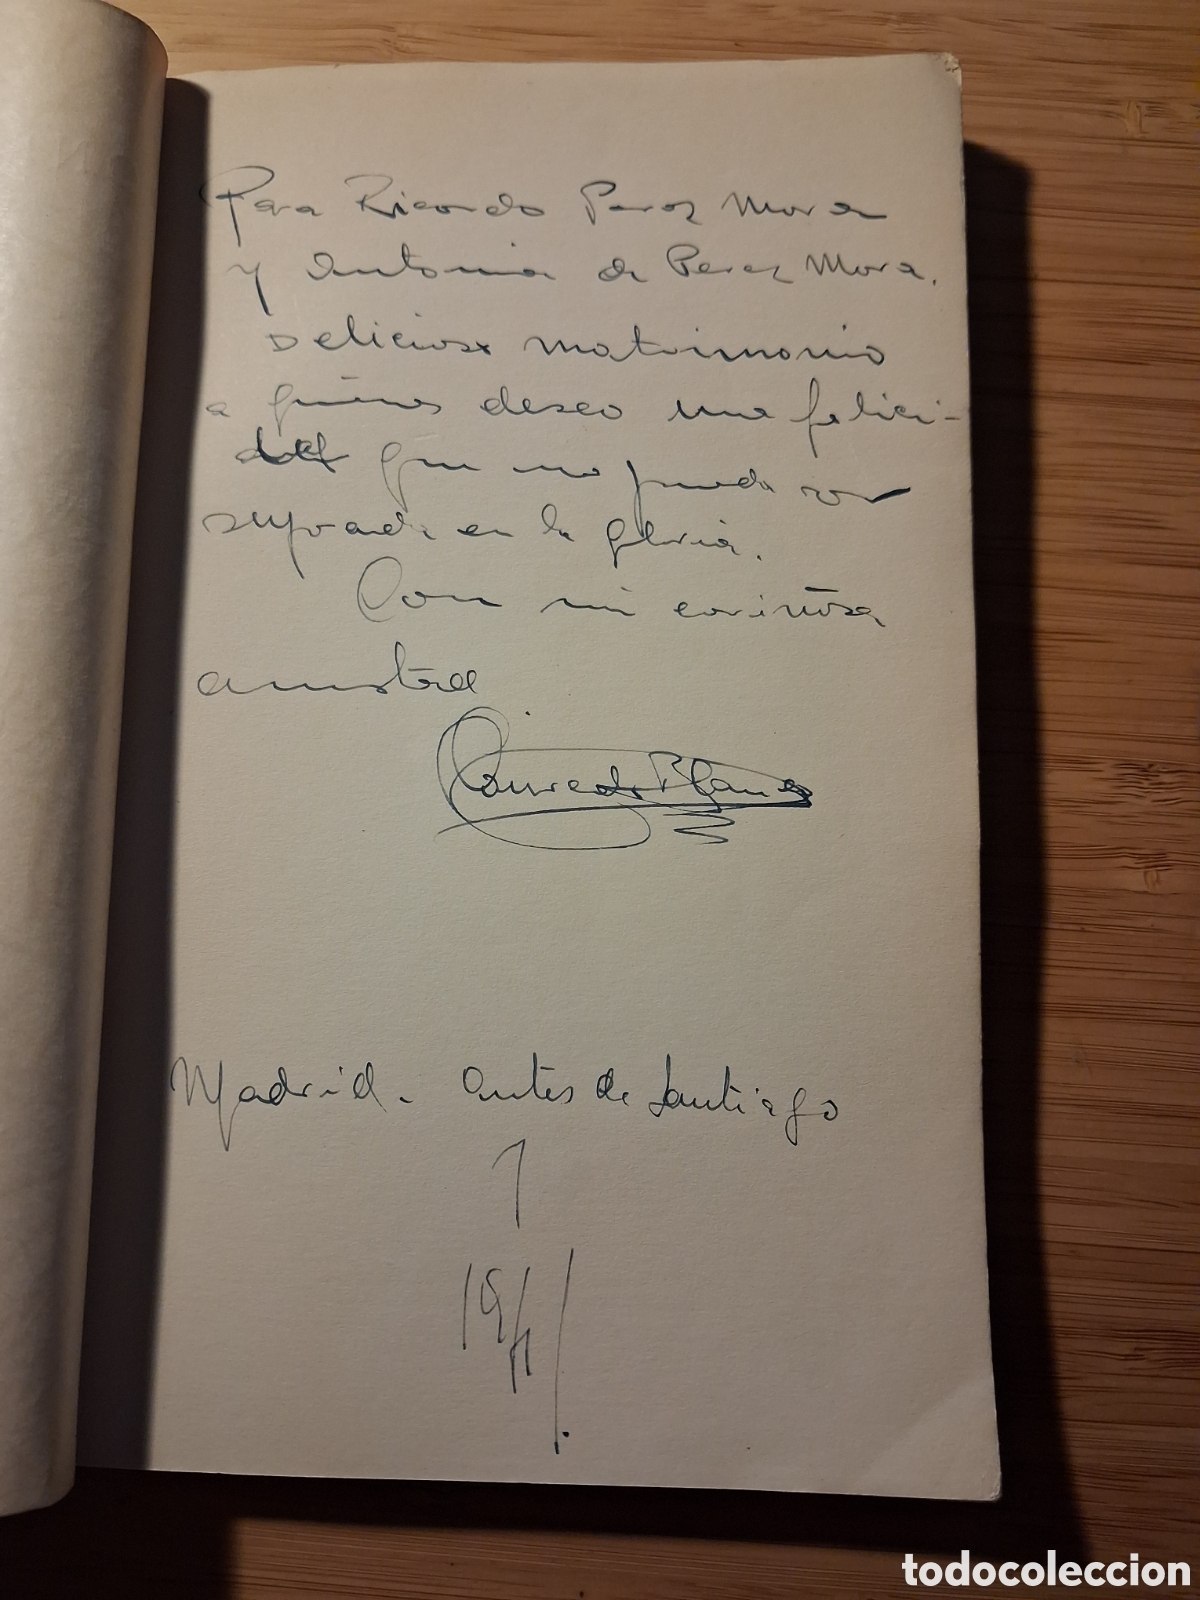 Para Ricardo Perez Mora
y Antonia de Perez Mora.
Delicioso matrimonio
a quienes deseo una felici-
dad que no pueda ser
superada en la gloria.
Con mi cariñosa
amistad
Madrid. Antes de Santiago
1941.
todocoleccion